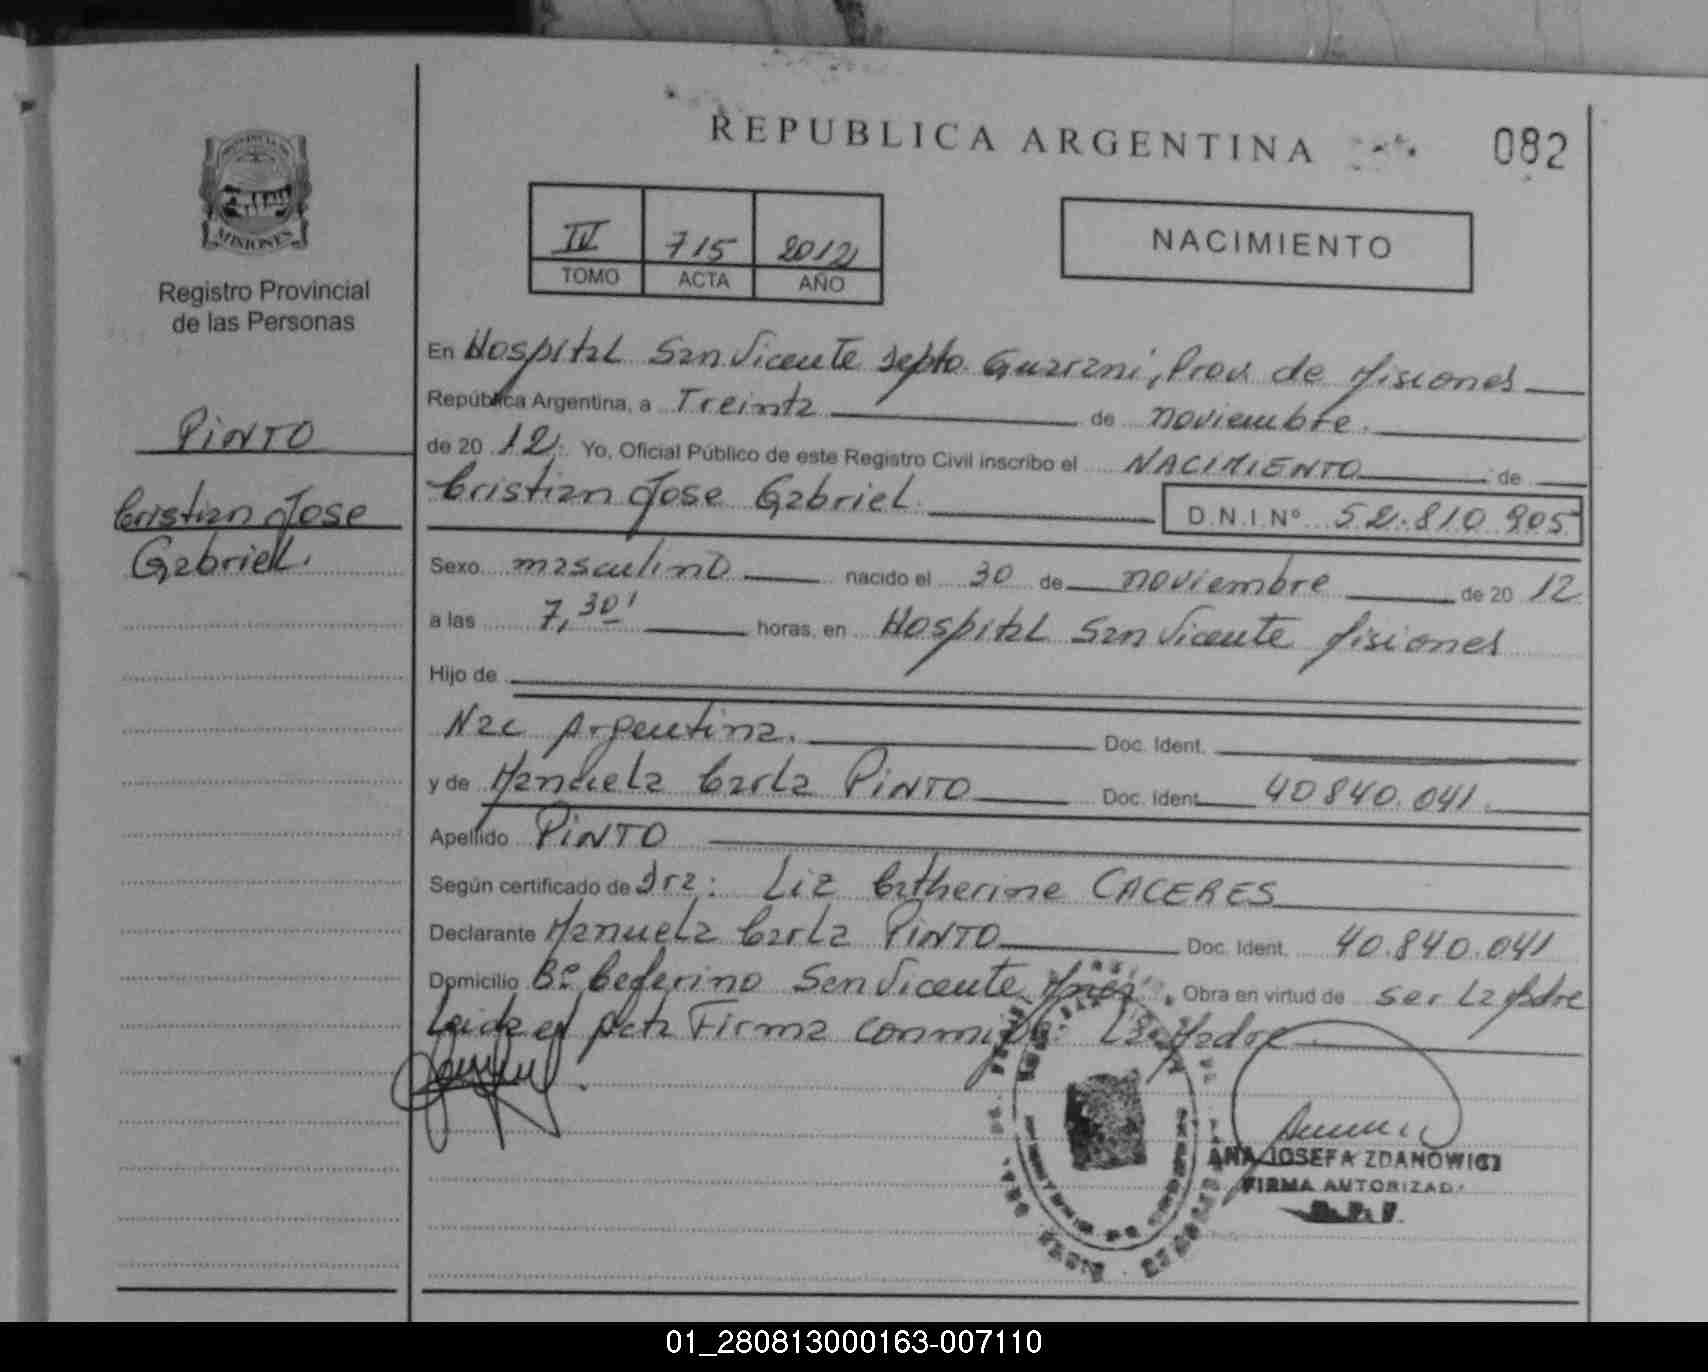 REPUBLICA ARGENTINA
082
PROVINCIA DE
MISIONES
Registro Provincial
de las Personas
IV 715 2012
TOMO ACTA AÑO
NACIMIENTO
PINTO
Cristian Jose
Gabriel.
En Hospital San Vicente Depto. Guarani, Prov. de Misiones
República Argentina, a Treinta de noviembre.
de 20 12. Yo, Oficial Público de este Registro Civil inscribo el NACIMIENTO de
Cristian Jose Gabriel. D.N.I.Nº 52.810.905
Sexo masculino nacido el 30 de noviembre de 20 12
a las 7,30' horas, en Hospital San Vicente Misiones
Hijo de
Nac Argentina. Doc. Ident.
y de Manuela Carla PINTO Doc. Ident. 40840.041.
Apellido PINTO
Según certificado de Dra: Liz Catherine CACERES
Declarante Manuela Carla PINTO Doc. Ident. 40.840.041
Domicilio Bº Ceferino San Vicente Obra en virtud de ser La Madre
Leida el Acta Firma conmigo: La Madre
ANA JOSEFA ZDANOWICZ
FIRMA AUTORIZADA
R.P.P.
01_280813000163-007110